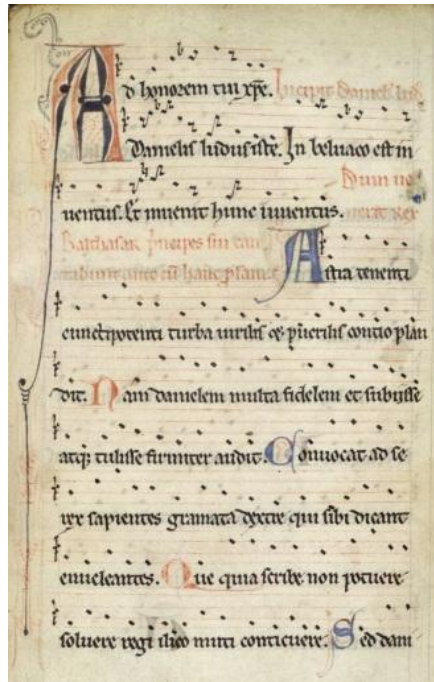 Ad honorem tui xp̄e. Incipit Danielis lud
Danielis ludus iste. In beluaco est in
Dum ue
uentus. Et inuenit hunc iuuentus. nerit rex
Balthasar p̄ncipes sui can
tabunt ante hanc Astra tenenti
cunctipotenti turba uirilis et puerilis contio plau
dit. Nam danielem multa fidelem et subiisse
atq; tulisse firmiter audit. Conuocat ad se
rex sapientes gramata dextre qui sibi dicant
enucleantes. Que quia scribe non potuere
soluere regi ilico muti conticuere. Sed dani